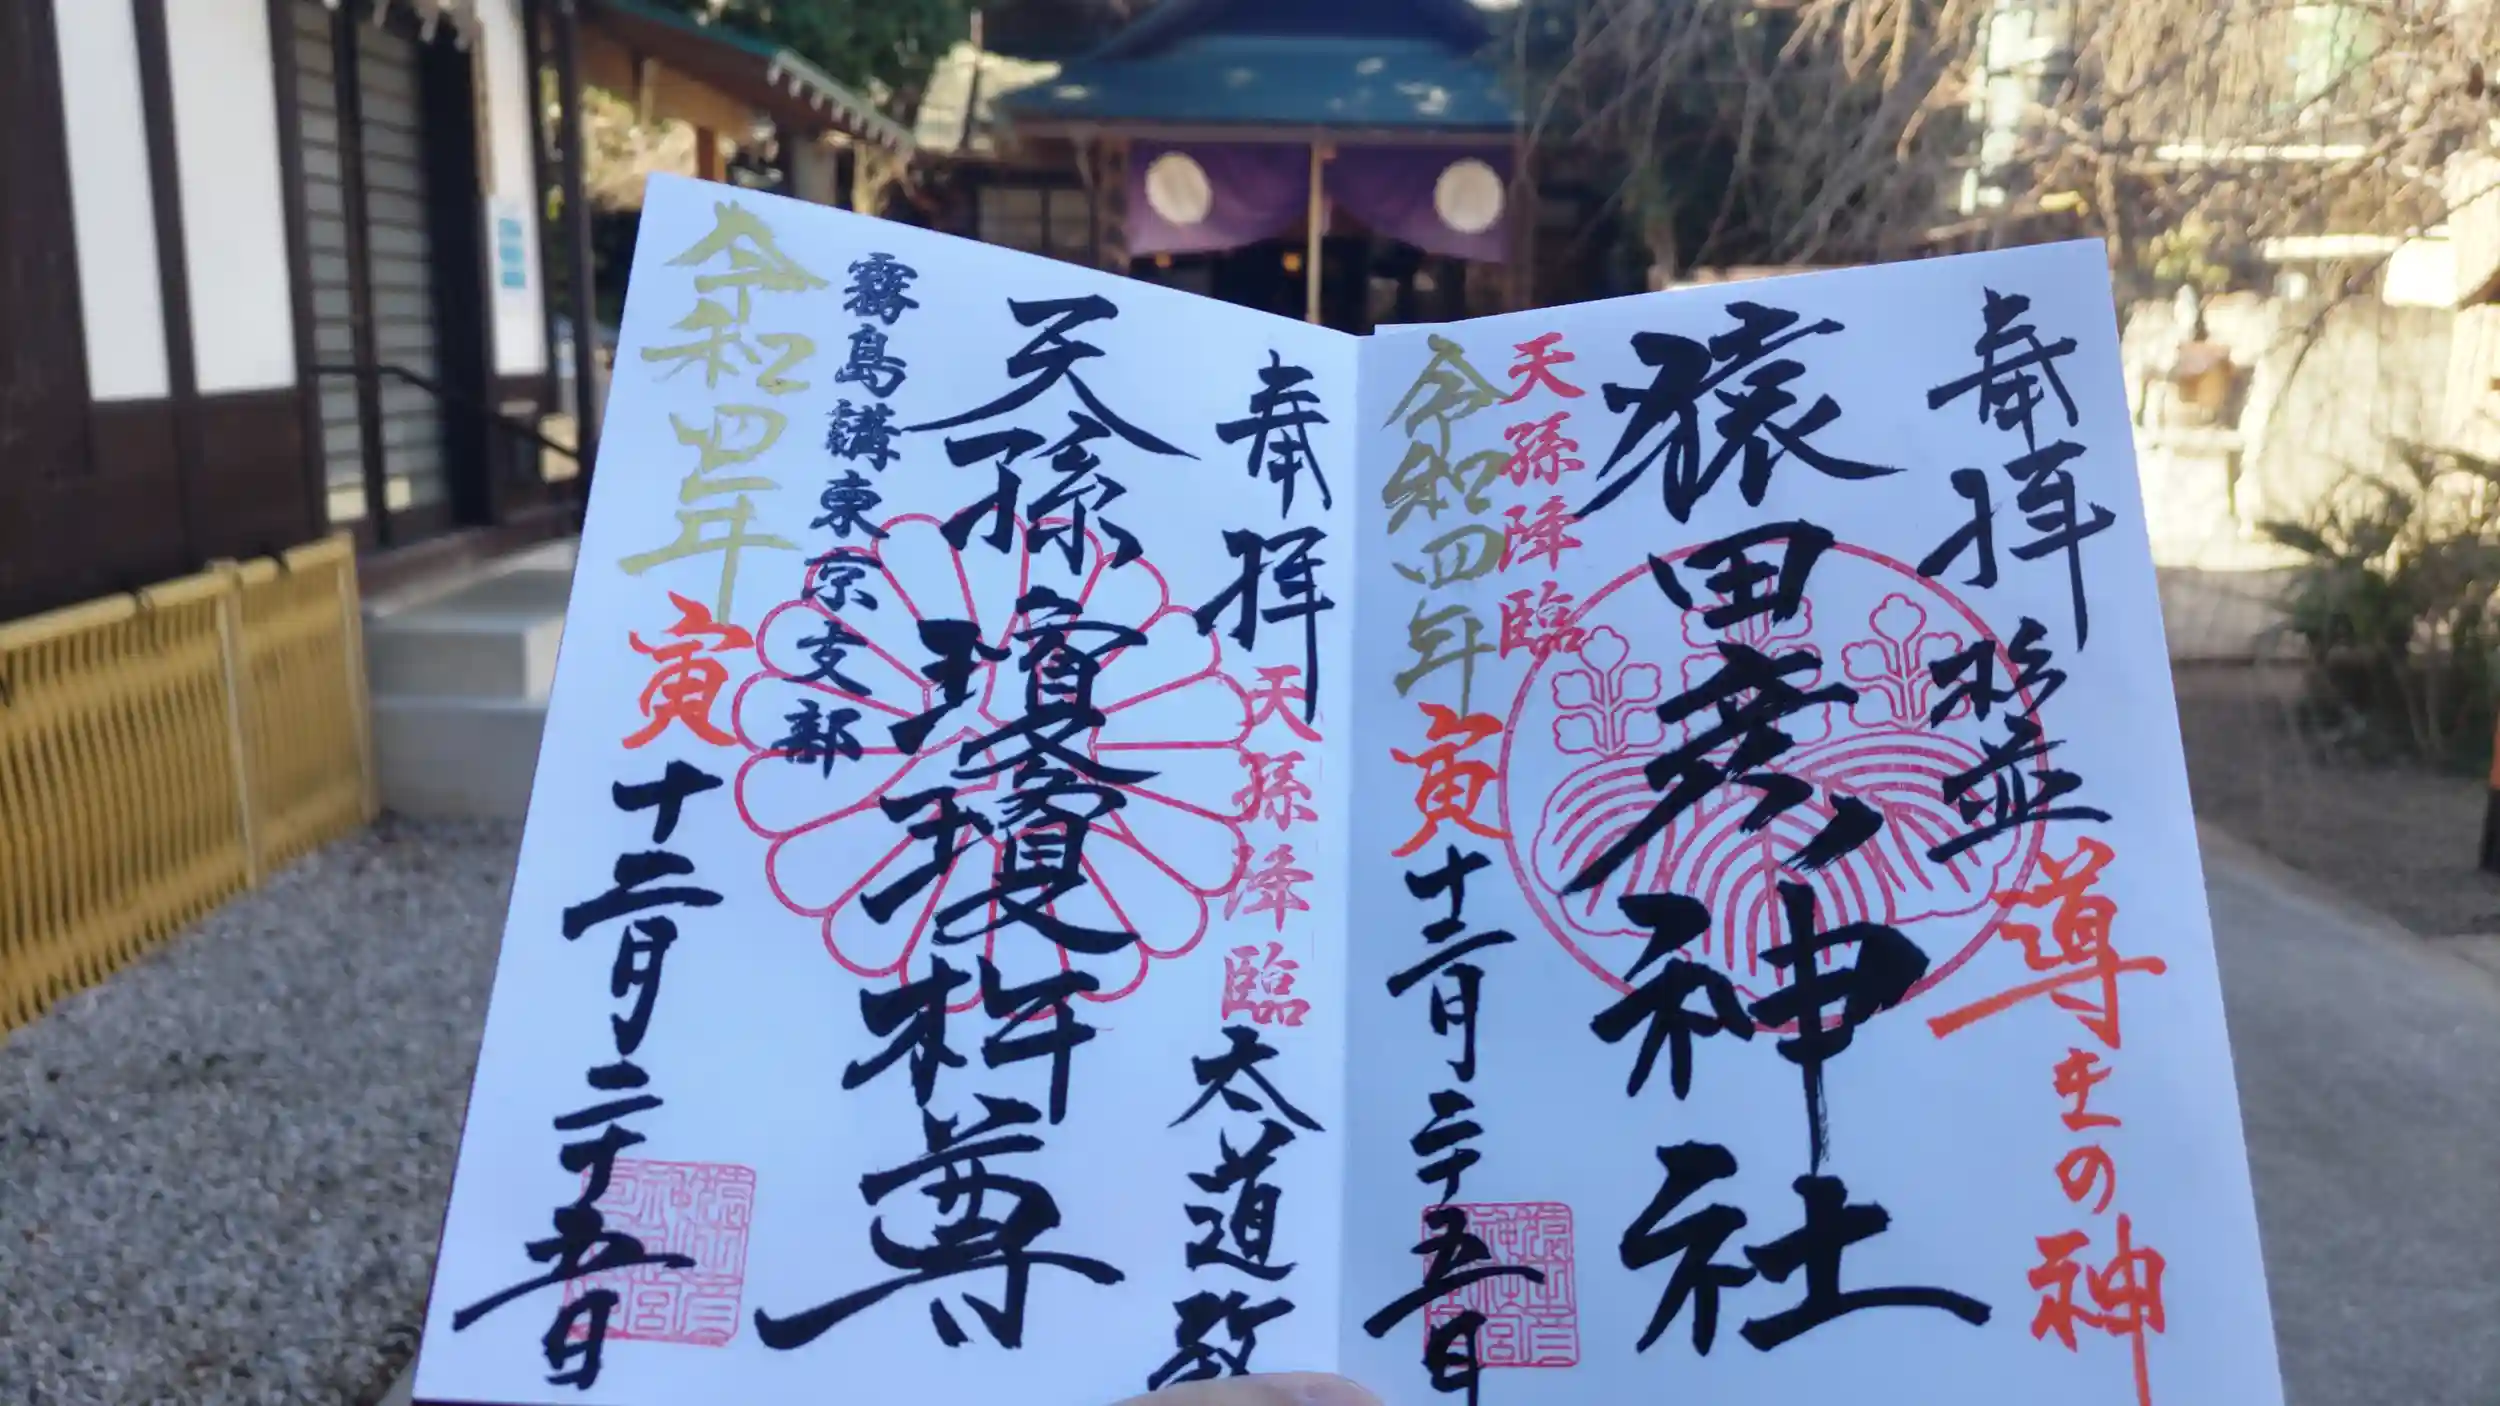 奉拝
杉並
導きの神
猿田彦神社
天孫降臨
令和四年寅十二月二十五日
奉拝
天孫降臨
太道教
天孫瓊瓊杵尊
霧島講東京支部
令和四年寅十二月二十五日